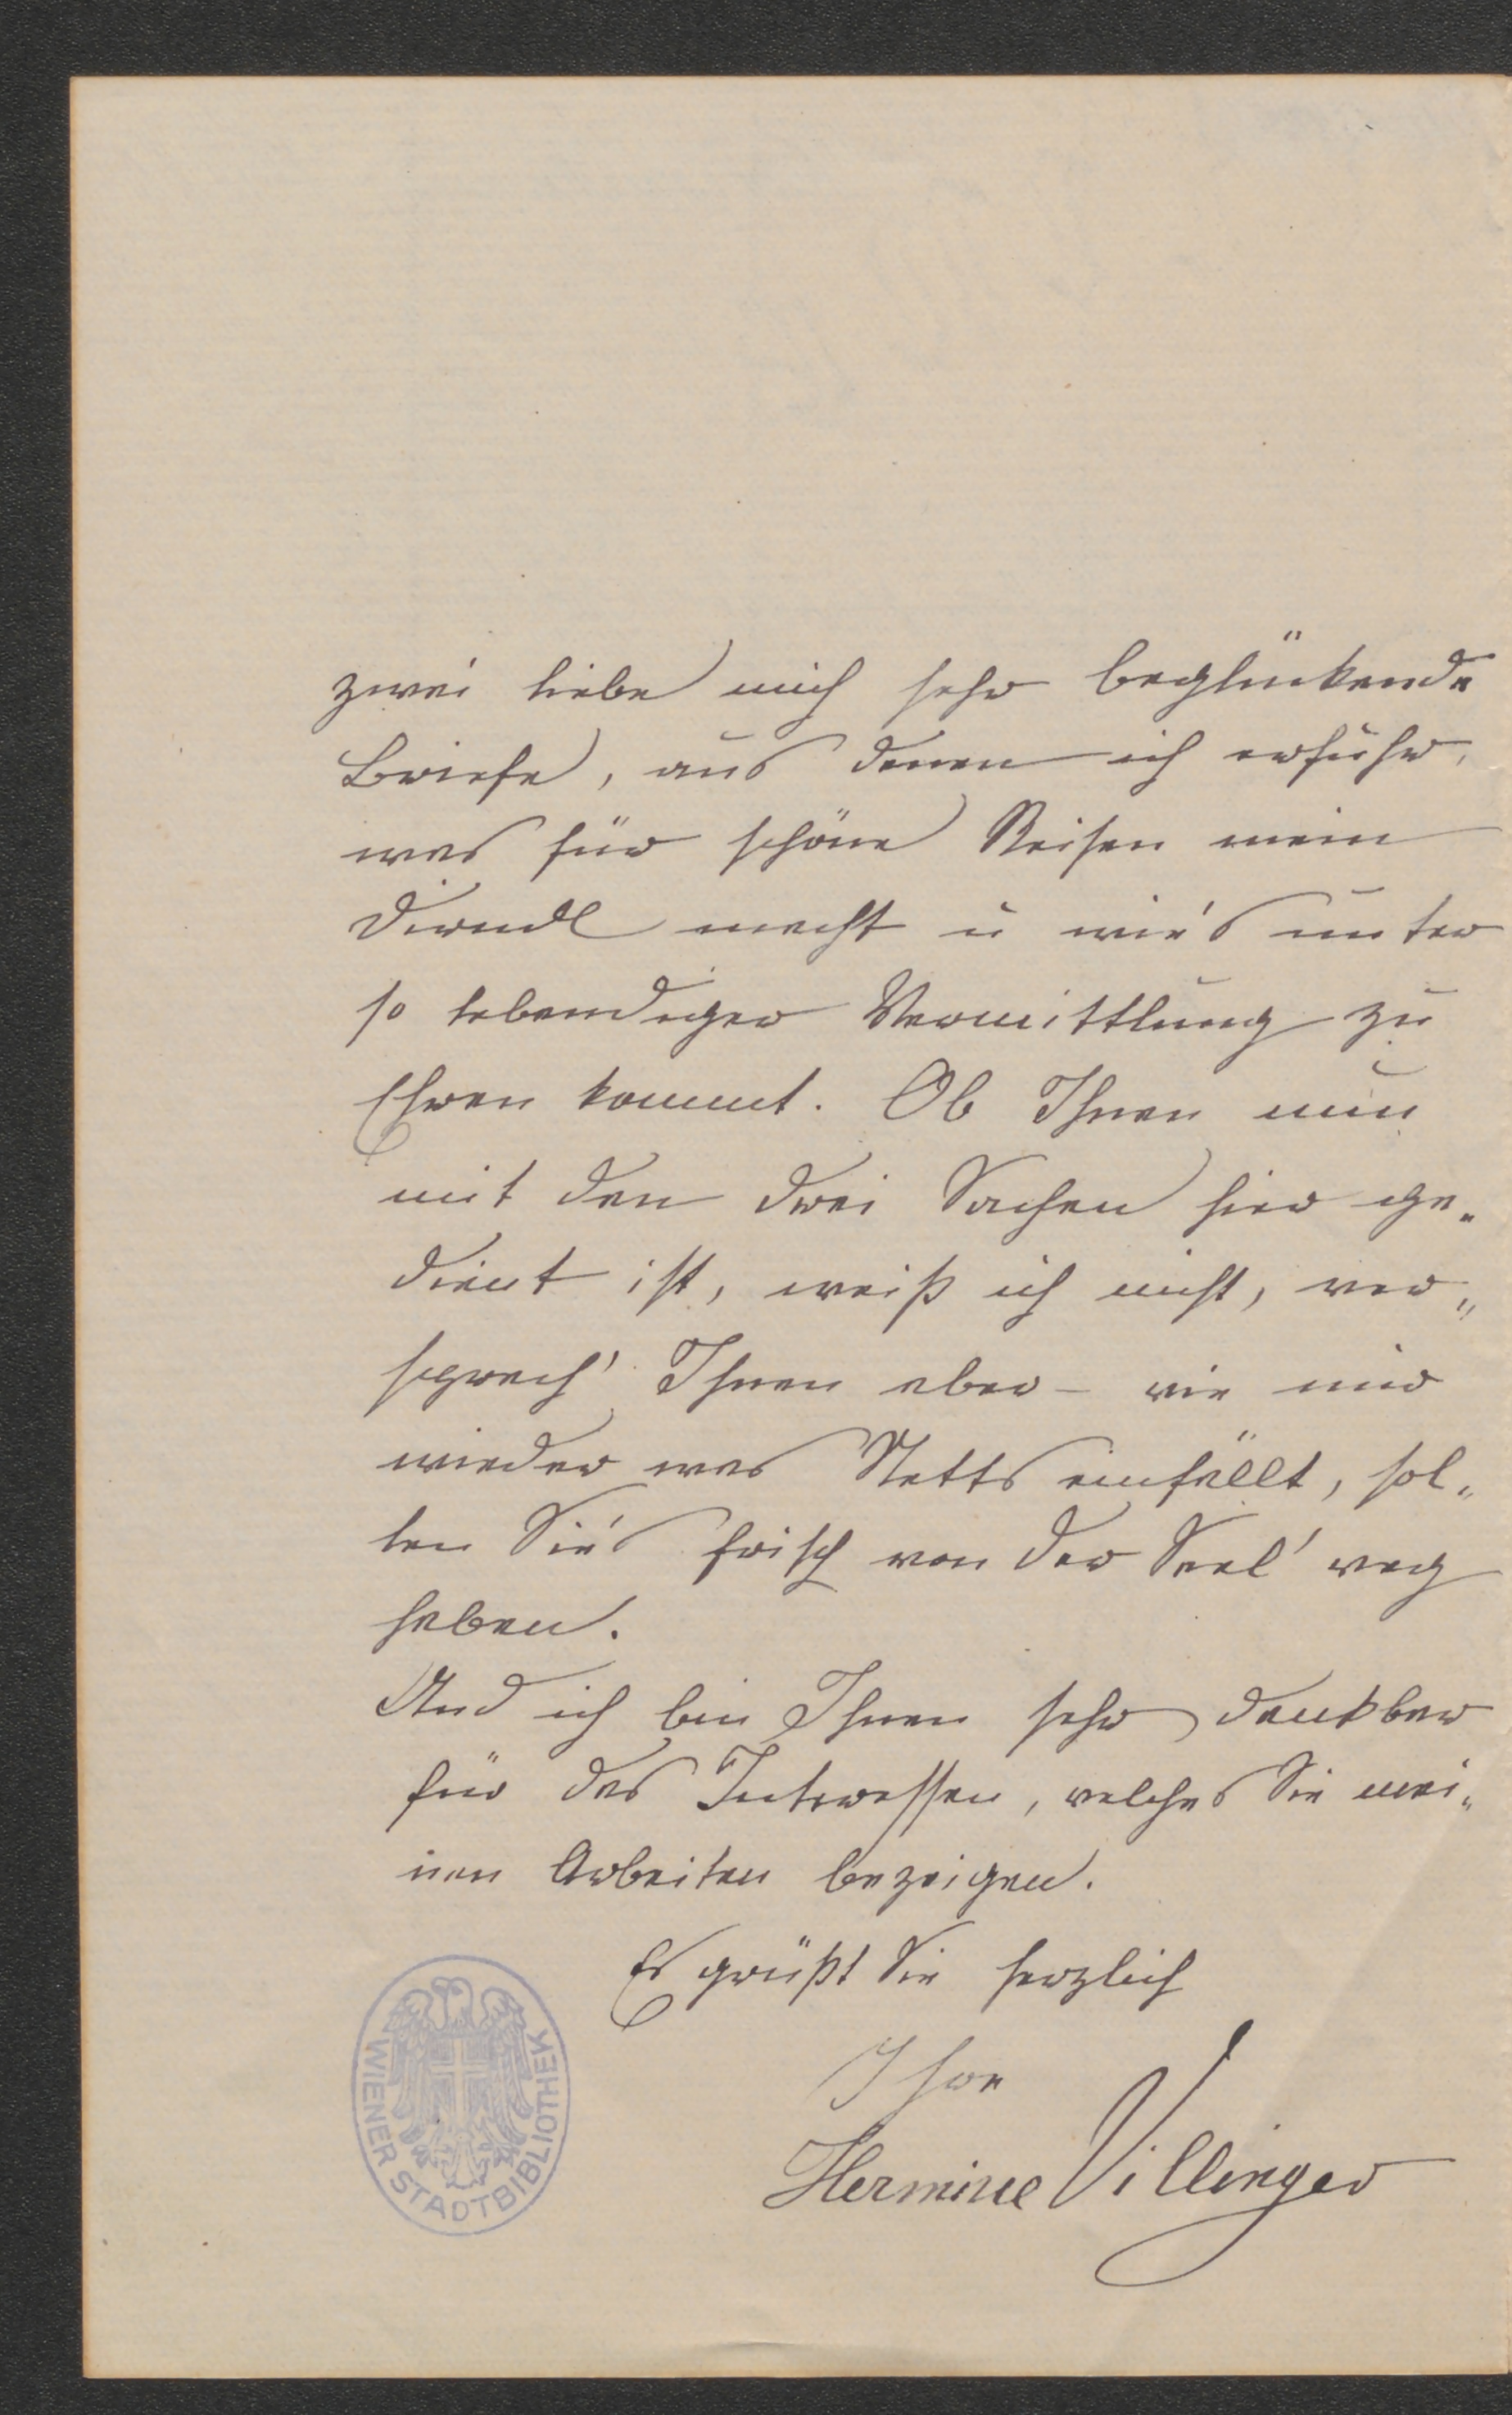 zwei liebe mich sehr beglückende
Briefe, aus denen ich erfuhr,
was für schöne Reisen mein
Dirndl macht u wie's unter
so lebendiger Vermittlung zu
Ehren kommt. Ob Ihnen nun
mit den drei Sachen hier ge„
dient ist, weiß ich nicht, ver„
sprech' Ihnen aber – wie mir
wieder was Netts einfällt, sol„
len Sie's frisch von der Seel' weg
haben.
Und ich bin Ihnen sehr dankbar
für das Interessen, welches Sie mei„
nen Arbeiten bezeigen.
Es grüßt Sie herzlich
Ihre
Hermine Villinger
WIENER STADTBIBLIOTHEK